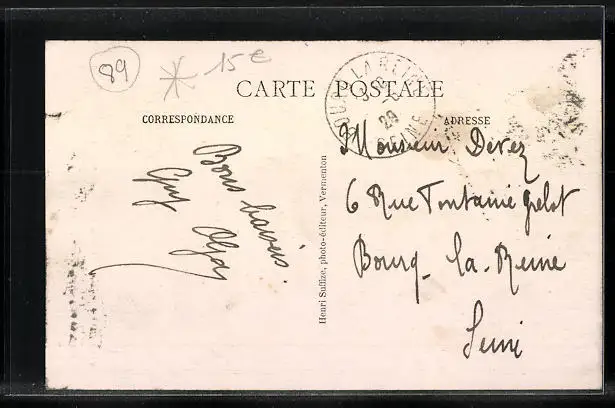 89
15€
CARTE POSTALE
CORRESPONDANCE
ADRESSE
BOURG LA REINE
29
SEINE
Bons baisers.
Guy
Henri Suffize, photo-éditeur, Vermenton
Monsieur Devez
6 Rue Fontaine Grelot
Bourg-la-Reine
Seine